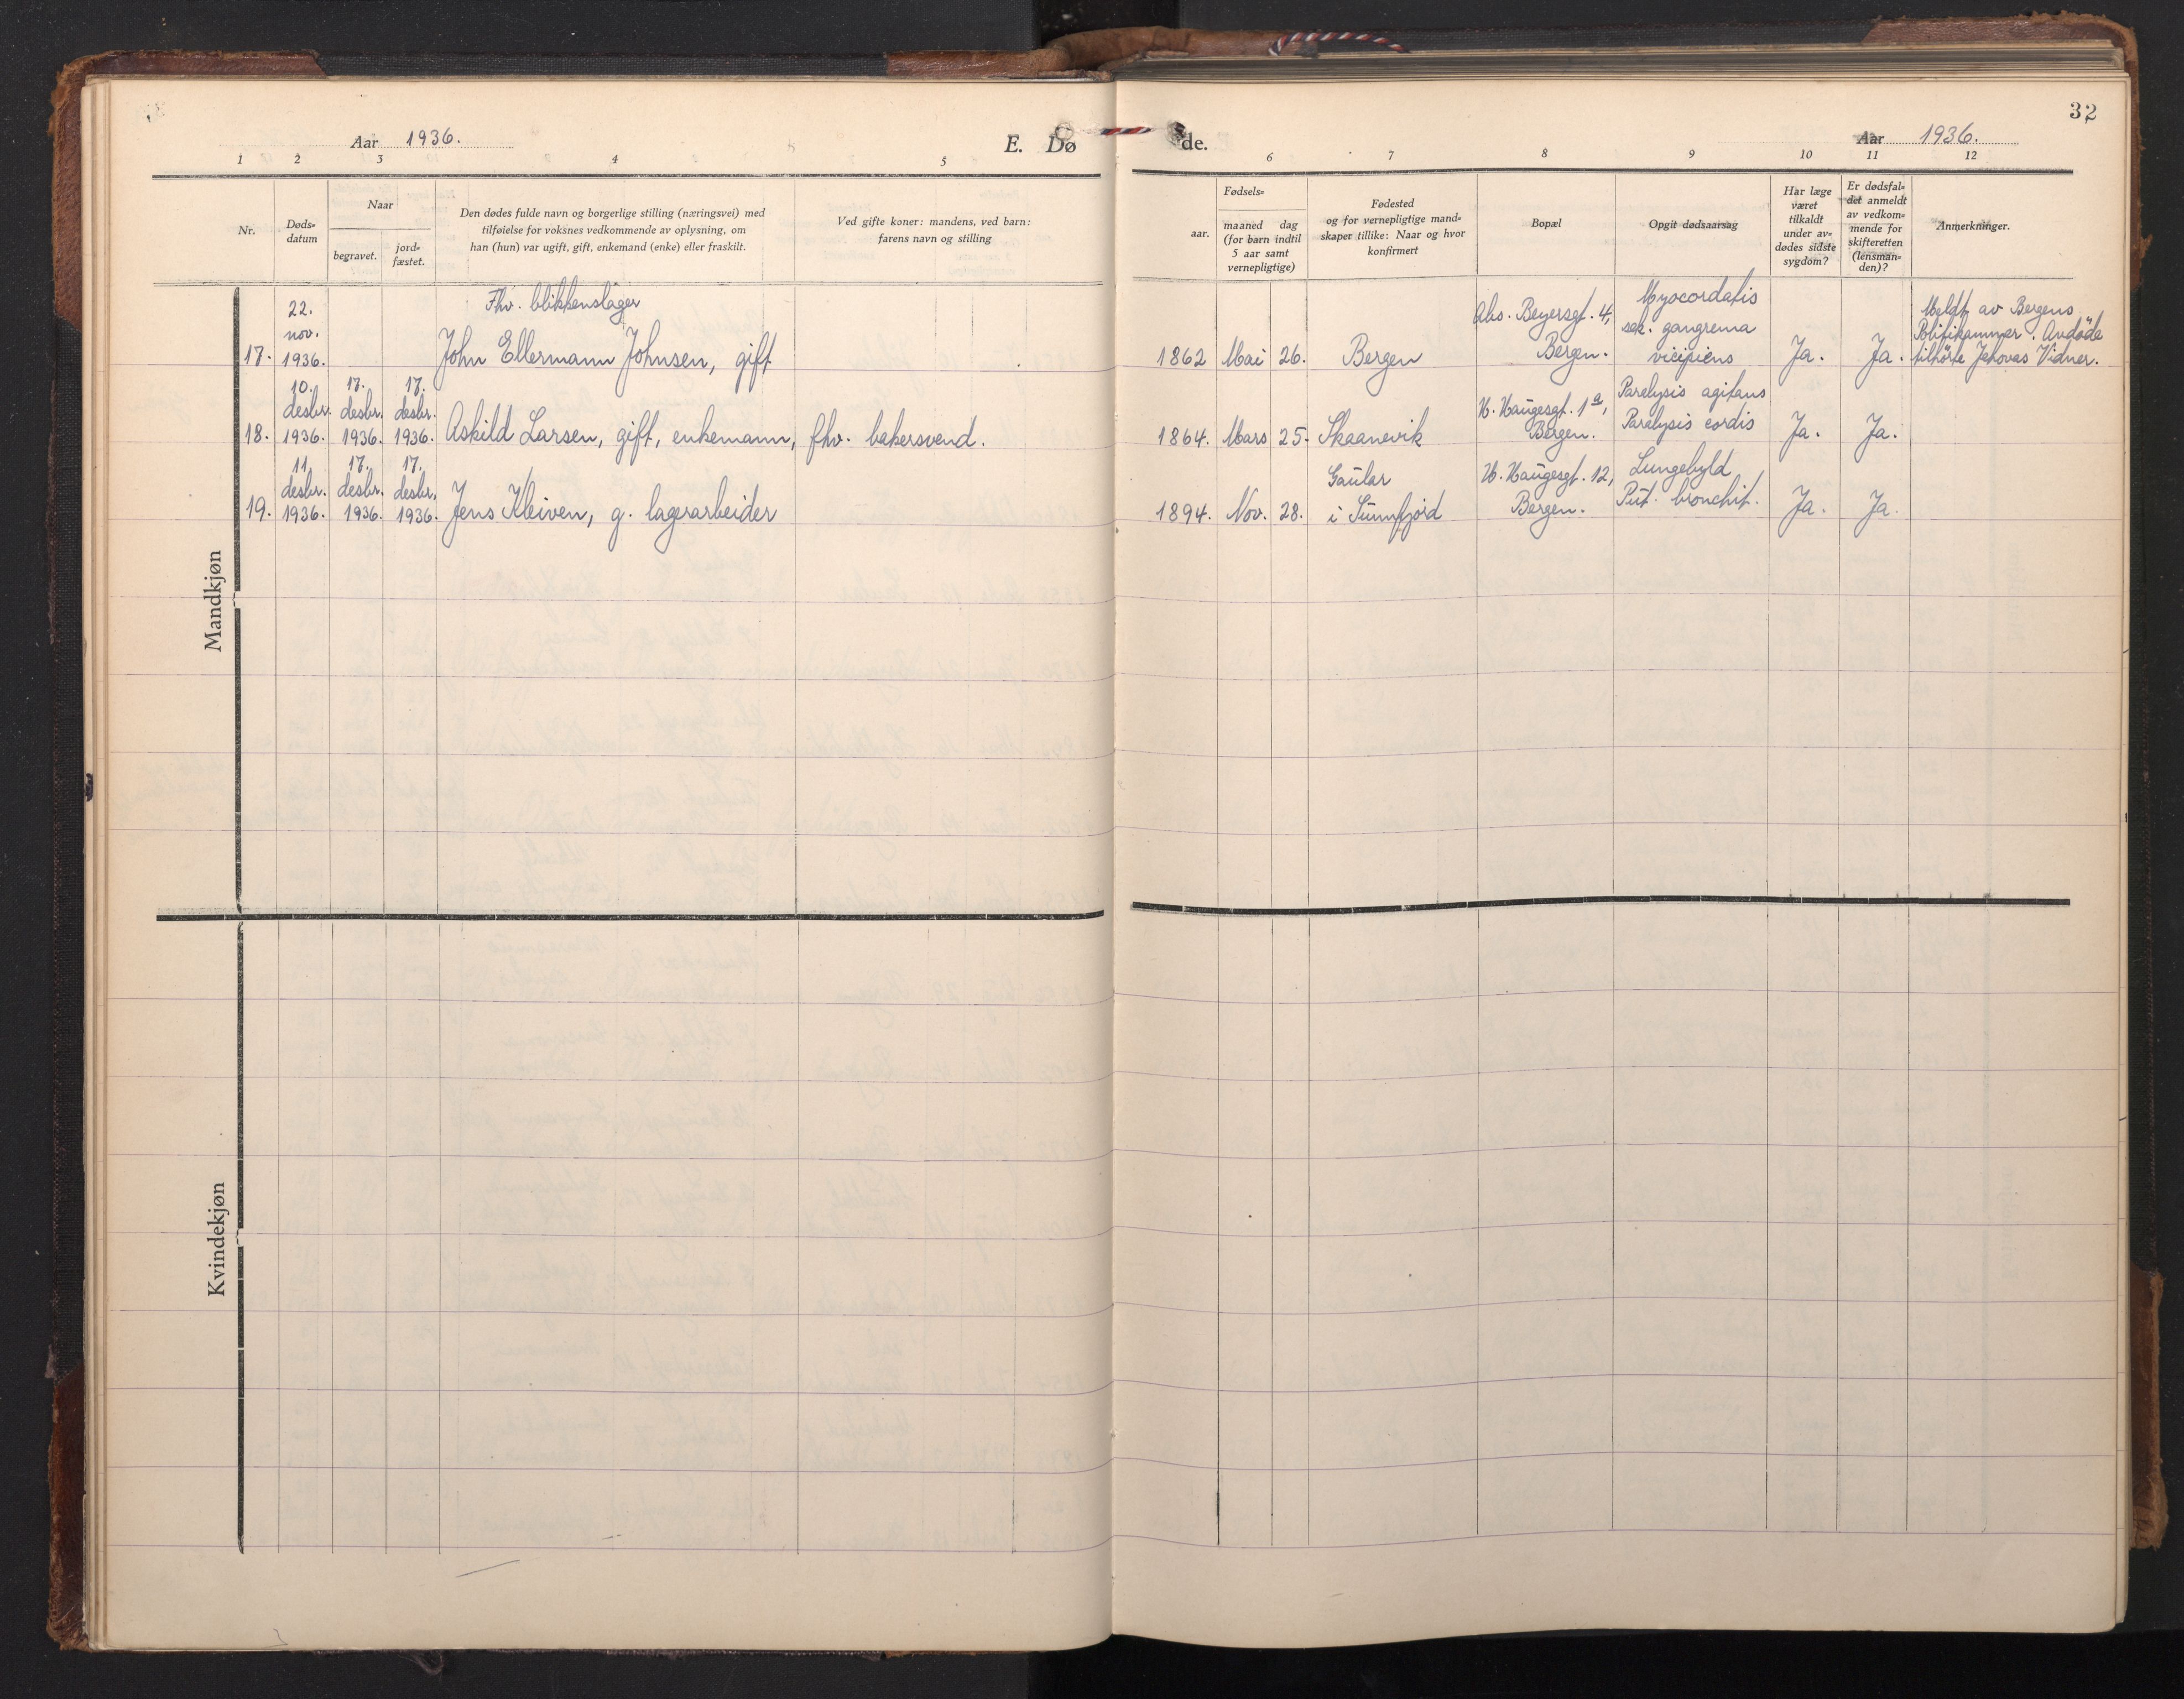 32
Aar 1936.
E. Dø
de.
Aar 1936.
1 2 3 4 5
6 7 8 9 10 11 12
Nr.
Døds-
datum
Naar
begravet.
jord-
fæstet.
Den dødes fulde navn og borgerlige stilling (næringsvei) med
tilføielse for voksnes vedkommende av oplysning, om
han (hun) var ugift, gift, enkemand (enke) eller fraskilt.
Ved gifte koner: mandens, ved barn:
farens navn og stilling
Fødsels-
aar.
maaned dag
(for barn indtil
5 aar samt
vernepligtige)
Fødested
og for vernepligtige mand-
skaper tillike: Naar og hvor
konfirmert
Bopæl
Opgit dødsaarsag
Har læge
været
tilkaldt
under av-
dødes sidste
sygdom?
Er dødsfal-
det anmeldt
av vedkom-
mende for
skifteretten
(lensman-
den)?
Anmerkninger.
Mandkjøn
17.
22.
nov.
1936.
Fhv. blikkenslager
John Ellermann Johnsen, gift
1862 Mai 26. Bergen
Abs. Beyersgt. 4,
Bergen.
Myocordatis
sek. gangrema
vicipiens
Ja. Ja.
Meldt av Bergens
Politikammer. Avdøde
tilhørte Jehovas Vidner.
18.
10.
desbr.
1936.
17.
desbr.
1936.
17.
desbr.
1936.
Askild Larsen, gift, enkemann, fhv. bakersvend.
1864. Mars 25. Skaanevik
H. Haugesgt. 1a,
Bergen.
Paralysis agitans
Paralysis cordis
Ja. Ja.
19.
11.
desbr.
1936.
17.
desbr.
1936.
17.
desbr.
1936.
Jens Kleiven, g. lagerarbeider
1894. Nov. 28.
Gaular
i Sunnfjord
H. Haugesgt. 12,
Bergen.
Lungebyld
Put. bronchit.
Ja. Ja.
Kvindekjøn